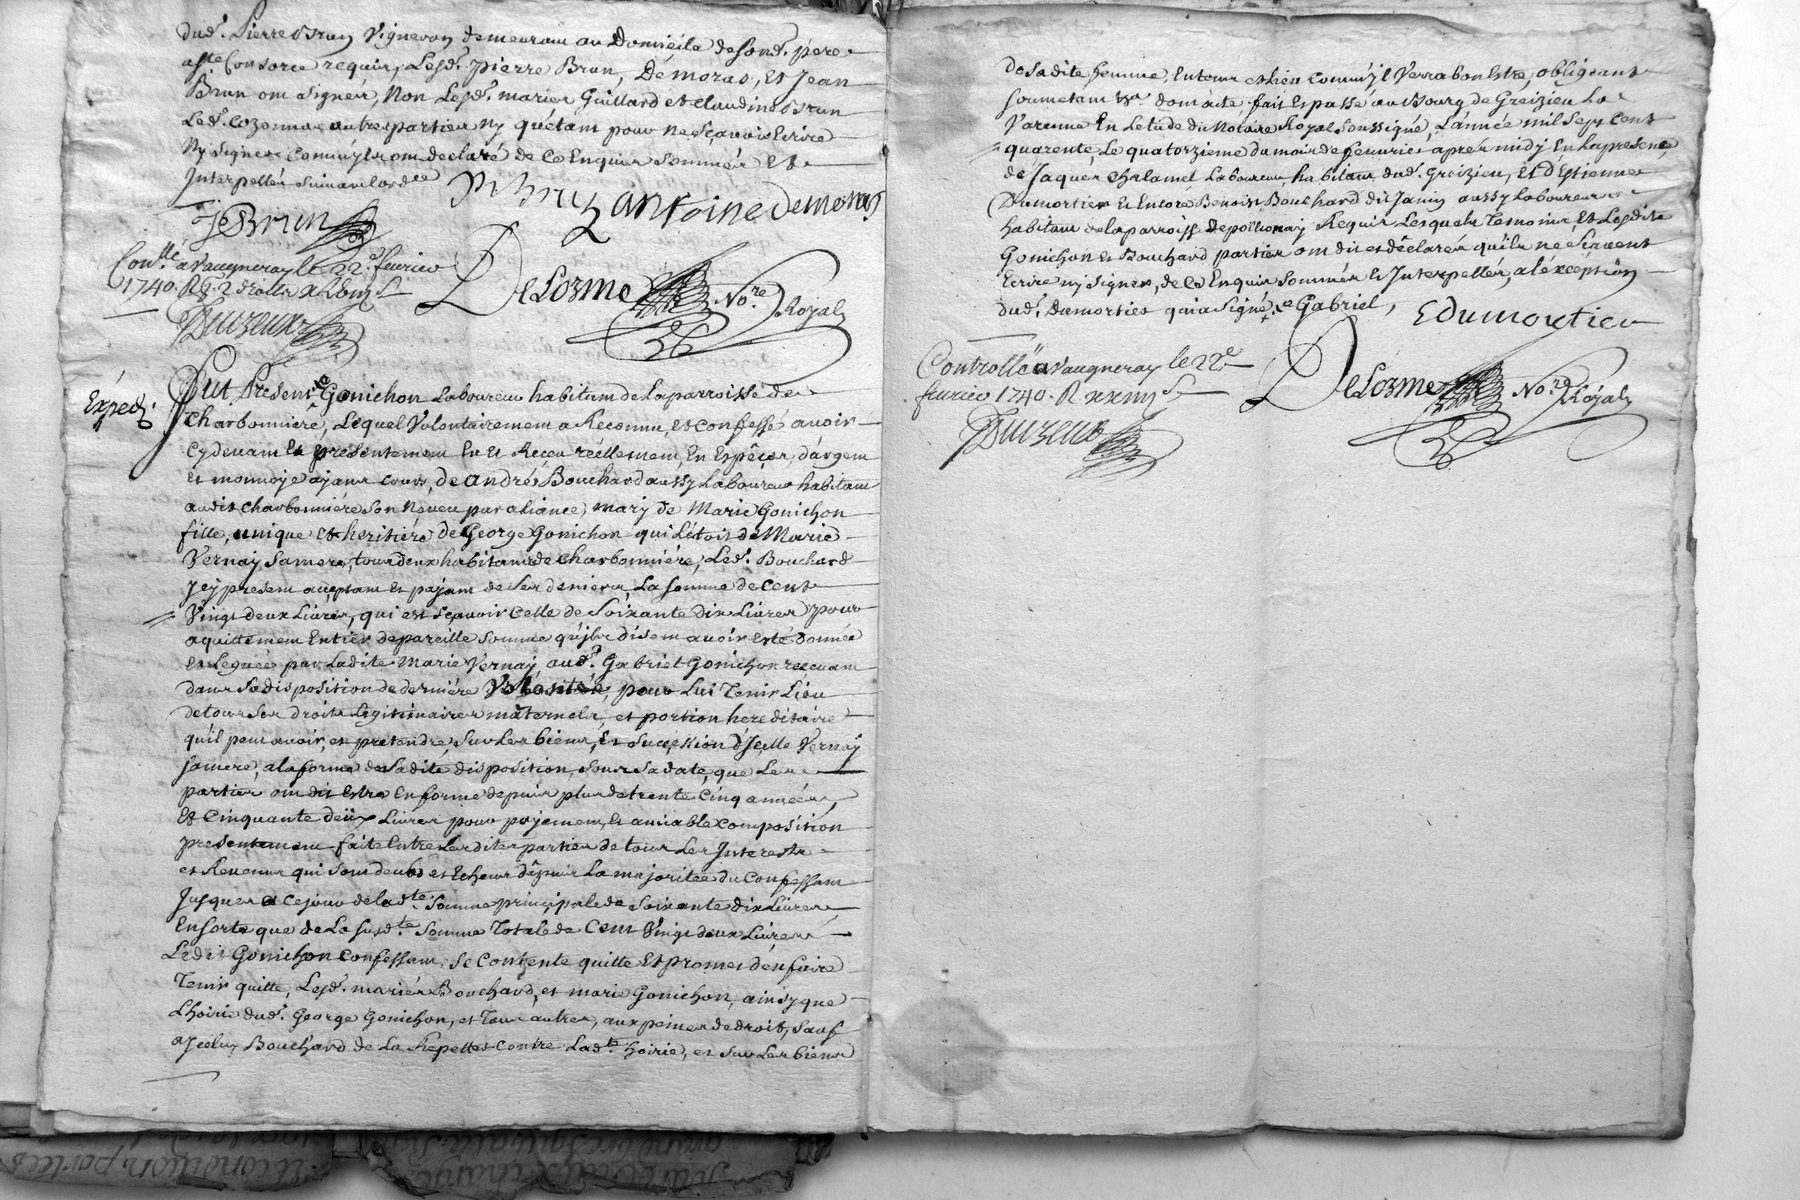 dud. Pierre Brun Vigneron demeurant au Domicile de sond. pere
aste Consorce requis, Lesd. pierre Brun, Demoras, Et Jean
Brun ont signéz, Non Lesd. mariez Guillard et claudine Brun
Led. Cozonna autres parties ny quétant pour ne sçavoir Ecrire
Ny signer comm'ils ont declaré de ce Enquis sommez Et
Interpellez suivant lord.ce
P brun antoine demoras
J Brun
Con.llé a Vaugneray le 22e fevrier
1740. R
DeLorme No.re Royal
Expedi.
Fut Present Gonichon Laboureur habitant de La parroisse de
charbonniere, Lequel Volontairement a Reconnu, et confessé avoir
cy devant Et présentement Eu et Receu réellement, En Espéces, d'argent
et monnoye ayant cours, de andré Bouchard aussy Laboureur habitant
audit charbonniére son Neveu par aliance, mary de Marie Gonichon
fille, unique et heritiére de George Gonichon qui L'étoit de Marie
Vernay sa mere, tous deux habitants de charbonniére, Led. Bouchard
Jcy present acceptant et payant de ses deniers, La somme de cent
Vingt deux Livres, qui est sçavoir celle de soixante dix Livres pour
aquittement Entier de pareille somme qu'jls disent avoir esté donnée
et Leguée par Ladite Marie Vernay aud. Gabriel Gonichon recevant
dans sa disposition de derniére Volonté, pour Lui Tenir Lieu
de tous ses droits Legitimaires maternels, et portion hereditaire
qu'il peut avoir, et pretendre, sur Les biens, Et succession d'Jcelle Vernay
sa mere, a la forme de sadite disposition, sous sa date, que Les
parties ont dit Estre En forme depuis plus de trente cinq années,
Et Cinquante deux Livres pour payement, Et amiable composition
presentement faite Entre Lesdites parties de tous Les Interests
et Revenus qui sont deubs et Echeus dépuis La majoritée du Confessant
Jusques a ce jour de lad.te somme principale de soixante dix Livres,
Ensorte que de La susd.te somme Totale de Cent Vingt deux Livres
Ledit Gonichon Confessant, se contente quitte Et promet d'en faire
Tenir quitte, Lesd. mariez Bouchard, et marie Gonichon, ainsy que
L'hoirie dud. George Gonichon, et Tous autres, aux peines de droit, sauf
a Jceluy Bouchard de La Repetter contre Lad.te hoirie, et sur Les biens
de sadite femme, En tems et Lieu comm'jl Verra bon Estre, obligeant
soumetant &a. dont acte fait Et passé au Bourg de Greizieu La
Varenne En L'etude du Notaire Royal soussigné, L'année mil sept cent
quarente, Le quatorzieme du mois de fevrier apres midy En La presence
de Jaques Chalamel Laboureur, habitant dud. Greizieu, Et d'Estienne
Dumortier Et Encore Benoist Bouchard dit Jamy aussy Laboureur
habitant de la parroisse de pollionay Requis Lesquels Temoins, Et Lesdits
Gonichon et Bouchard parties ont dit et déclarez qu'ils ne sçavent
Ecrire ny signer, de ce Enquis sommez Et Interpellez, a l'éxception
dud. Dumortier qui a signé, + Gabriel,
E dumortier
Controllé a Vaugneray le 22e
fevrier 1740. R
DeLorme No.re Royal